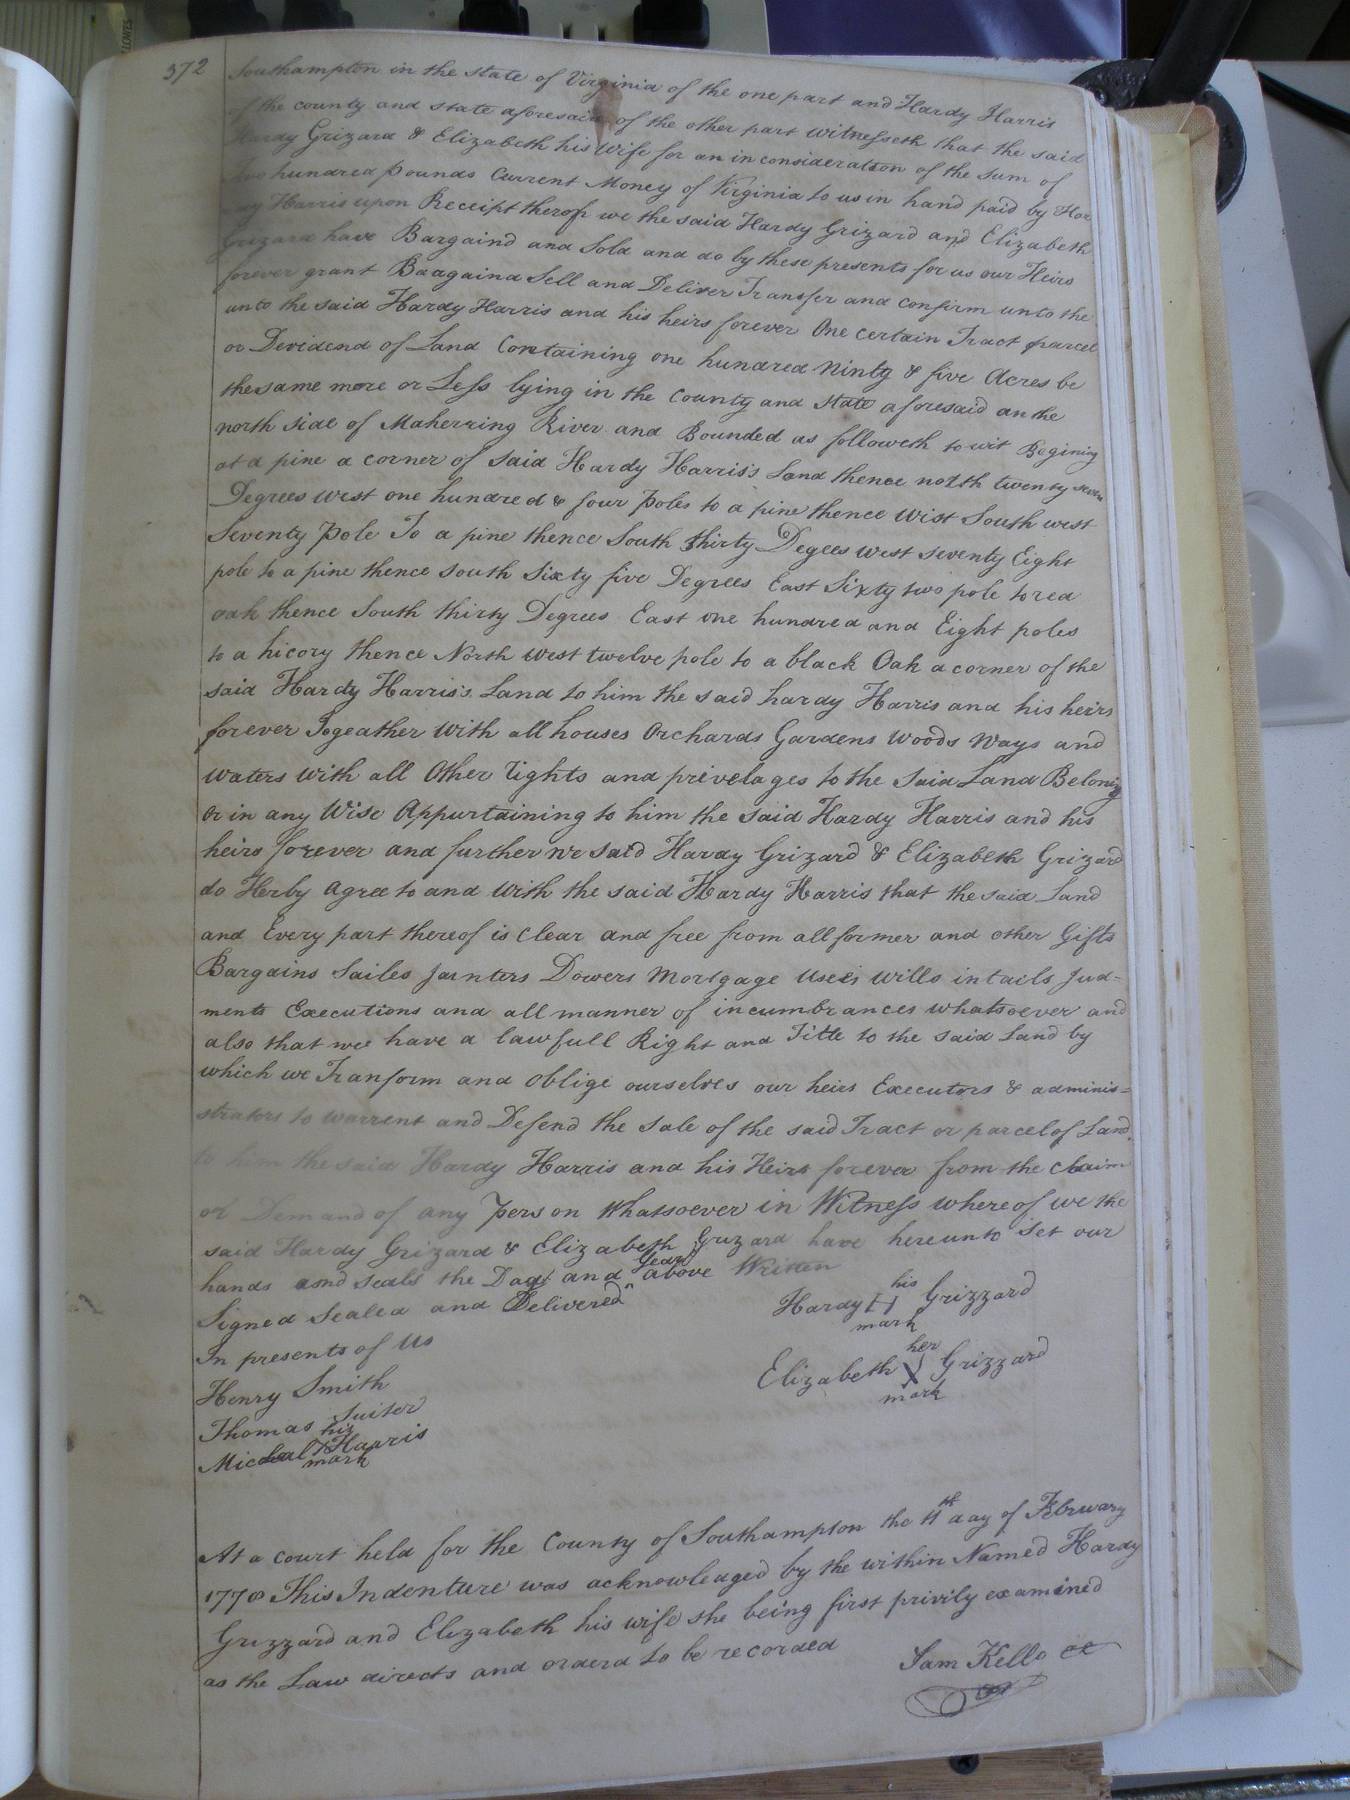 372
Southampton in the state of Virginia of the one part and Hardy Harris
of the county and state aforesaid of the other part Witnesseth that the said
Hardy Grizard & Elizabeth his Wife for an in consideration of the sum of
two hundred pounds Current Money of Virginia to us in hand paid by Har
dy Harris upon Receipt therof we the said Hardy Grizard and Elizabeth
Grizard have Bargaind and Sold and do by these presents for us our Heirs
forever grant Baagaind Sell and Deliver Transfer and confirm unto the
unto the said Hardy Harris and his heirs forever One certain Tract parcel
or Devidend of Land Containing one hundred ninty & five Acres be
the same more or Less lying in the County and State aforesaid an the
north side of Maherring River and Bounded as followeth to wit Begining
at a pine a corner of said Hardy Harris's Land thence noth twenty seven
Degrees west one hundred & four poles to a pine thence Wist South west
Seventy Pole To a pine thence South thirty Degees west seventy Eight
pole to a pine thence South Sixty five Degrees East Sixty two pole to red
oak thence South thirty Degrees East one hundred and Eight poles
to a hicory thence North west twelve pole to a black Oak a corner of the
said Hardy Harris's Land to him the said hardy Harris and his heirs
forever Togeather With all houses Orchards Gardens Woods Ways and
waters with all Other Tights and privelages to the Said Land Beloning
Or in any Wise Appurtaining to him the said Hardy Harris and his
heirs forever and further we said Hardy Grizard & Elizabeth Grizard
do Herby Agree to and With the said Hardy Harris that the said Land
and Every part thereof is Clear and free from all former and other Gifts
Bargains Sailes Jainters Dowers Mortgage Usees Wills intails Jud-
ments Executions and all manner of incumbrances whatsoever and
also that we have a lawfull Right and Title to the said Land by
which we Tranform and Oblige ourselves our heirs Executors & adminis=
strators to warrent and Defend the Sale of the said Tract or parcel of Land
to him the said Hardy Harris and his Heirs forever from the Claim
or Demand of any Person Whatsoever in Witness where of we the
said Hardy Grizard & Elizabeth Gruzard have hereunto Set our
hands and seals the Day and Year above Writen
Signed Sealed and Delivered
In presents of Us
Henry Smith
Thomas Suiter
his
Micaeal X Harris
mark
his
Hardy H Grizzard
mark
her
Elizabeth X Grizzard
mark
At a court held for the County of Southampton the day of February
1778 This Indenture was acknowledged by the within Named Hardy
Gruzzard and Elizabeth his wife she being first privily examined
as the Law directs and orderd to be recorded
Sam Kello